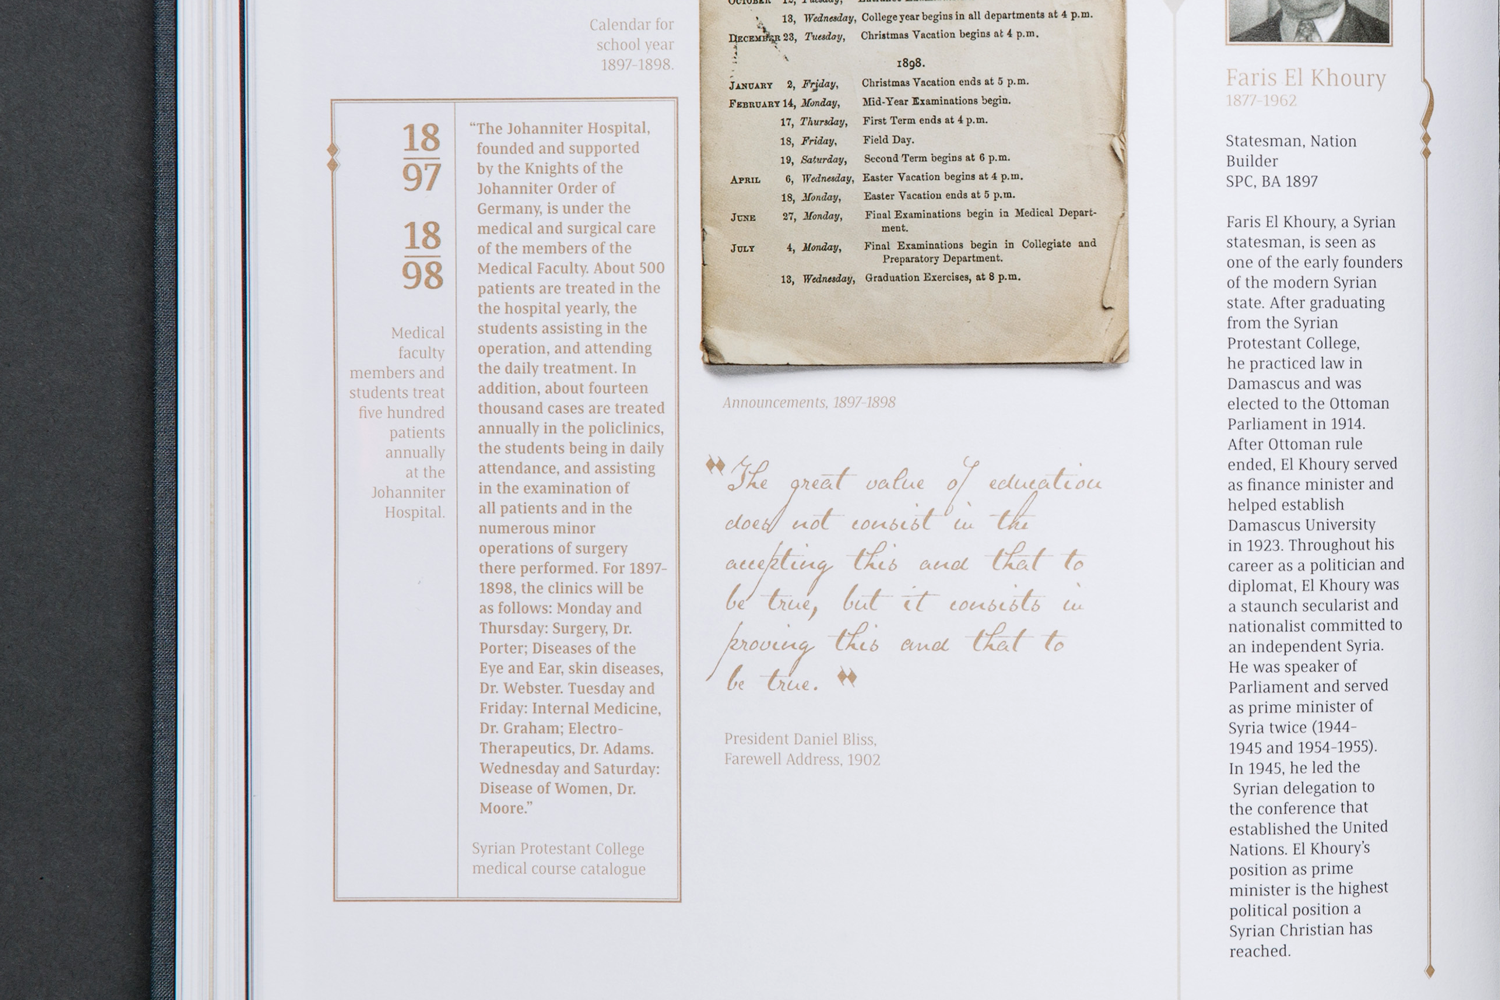 Calendar for
school year
1897-1898.
18
97
18
98
Medical
faculty
members and
students treat
five hundred
patients
annually
at the
Johanniter
Hospital.
“The Johanniter Hospital,
founded and supported
by the Knights of the
Johanniter Order of
Germany, is under the
medical and surgical care
of the members of the
Medical Faculty. About 500
patients are treated in the
the hospital yearly, the
students assisting in the
operation, and attending
the daily treatment. In
addition, about fourteen
thousand cases are treated
annually in the policlinics,
the students being in daily
attendance, and assisting
in the examination of
all patients and in the
numerous minor
operations of surgery
there performed. For 1897-
1898, the clinics will be
as follows: Monday and
Thursday: Surgery, Dr.
Porter; Diseases of the
Eye and Ear, skin diseases,
Dr. Webster. Tuesday and
Friday: Internal Medicine,
Dr. Graham; Electro-
Therapeutics, Dr. Adams.
Wednesday and Saturday:
Disease of Women, Dr.
Moore.”
Syrian Protestant College
medical course catalogue
13, Wednesday, College year begins in all departments at 4 p.m.
DECEMBER 23, Tuesday, Christmas Vacation begins at 4 p.m.
1898.
JANUARY 2, Friday, Christmas Vacation ends at 5 p.m.
FEBRUARY 14, Monday, Mid-Year Examinations begin.
17, Thursday, First Term ends at 4 p.m.
18, Friday, Field Day.
19, Saturday, Second Term begins at 6 p.m.
APRIL 6, Wednesday, Easter Vacation begins at 4 p.m.
18, Monday, Easter Vacation ends at 5 p.m.
JUNE 27, Monday, Final Examinations begin in Medical Depart-
ment.
JULY 4, Monday, Final Examinations begin in Collegiate and
Preparatory Department.
13, Wednesday, Graduation Exercises, at 8 p.m.
Announcements, 1897-1898
"The great value of education
does not consist in the
accepting this and that to
be true, but it consists in
proving this and that to
be true."
President Daniel Bliss,
Farewell Address, 1902
Faris El Khoury
1877-1962
Statesman, Nation
Builder
SPC, BA 1897
Faris El Khoury, a Syrian
statesman, is seen as
one of the early founders
of the modern Syrian
state. After graduating
from the Syrian
Protestant College,
he practiced law in
Damascus and was
elected to the Ottoman
Parliament in 1914.
After Ottoman rule
ended, El Khoury served
as finance minister and
helped establish
Damascus University
in 1923. Throughout his
career as a politician and
diplomat, El Khoury was
a staunch secularist and
nationalist committed to
an independent Syria.
He was speaker of
Parliament and served
as prime minister of
Syria twice (1944-
1945 and 1954-1955).
In 1945, he led the
Syrian delegation to
the conference that
established the United
Nations. El Khoury's
position as prime
minister is the highest
political position a
Syrian Christian has
reached.